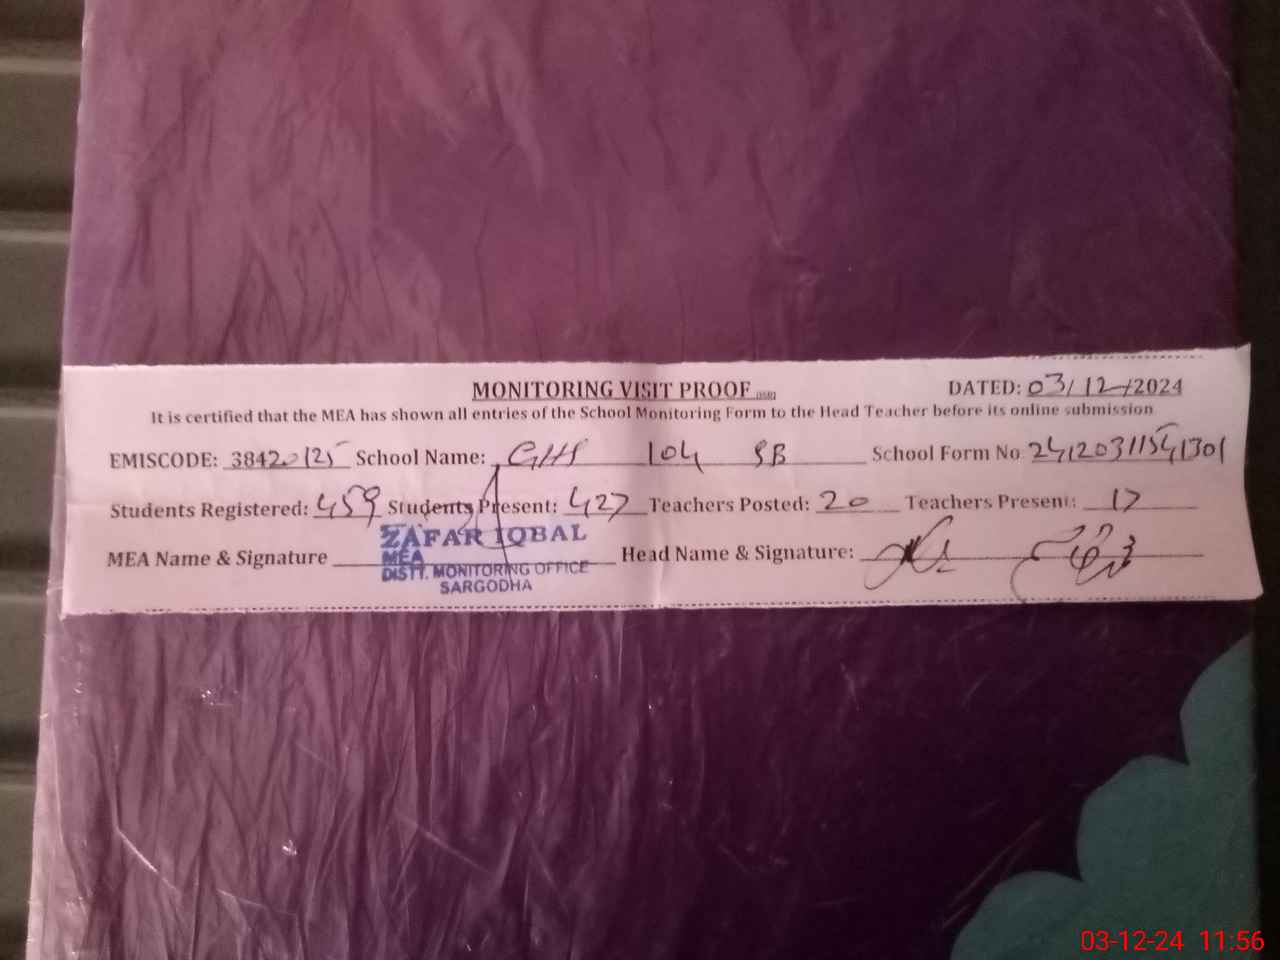 MONITORING VISIT PROOF
DATED: 03/12/2024
It is certified that the MEA has shown all entries of the School Monitoring Form to the Head Teacher before its online submission
EMISCODE: 38420125 School Name: GHS 104 SB School Form No. 24120311541301
Students Registered: 459 Students Present: 427 Teachers Posted: 20 Teachers Present: 17
MEA Name & Signature Head Name & Signature:
ZAFAR IQBAL
MEA
DISTT. MONITORING OFFICE
SARGODHA
03-12-24 11:56